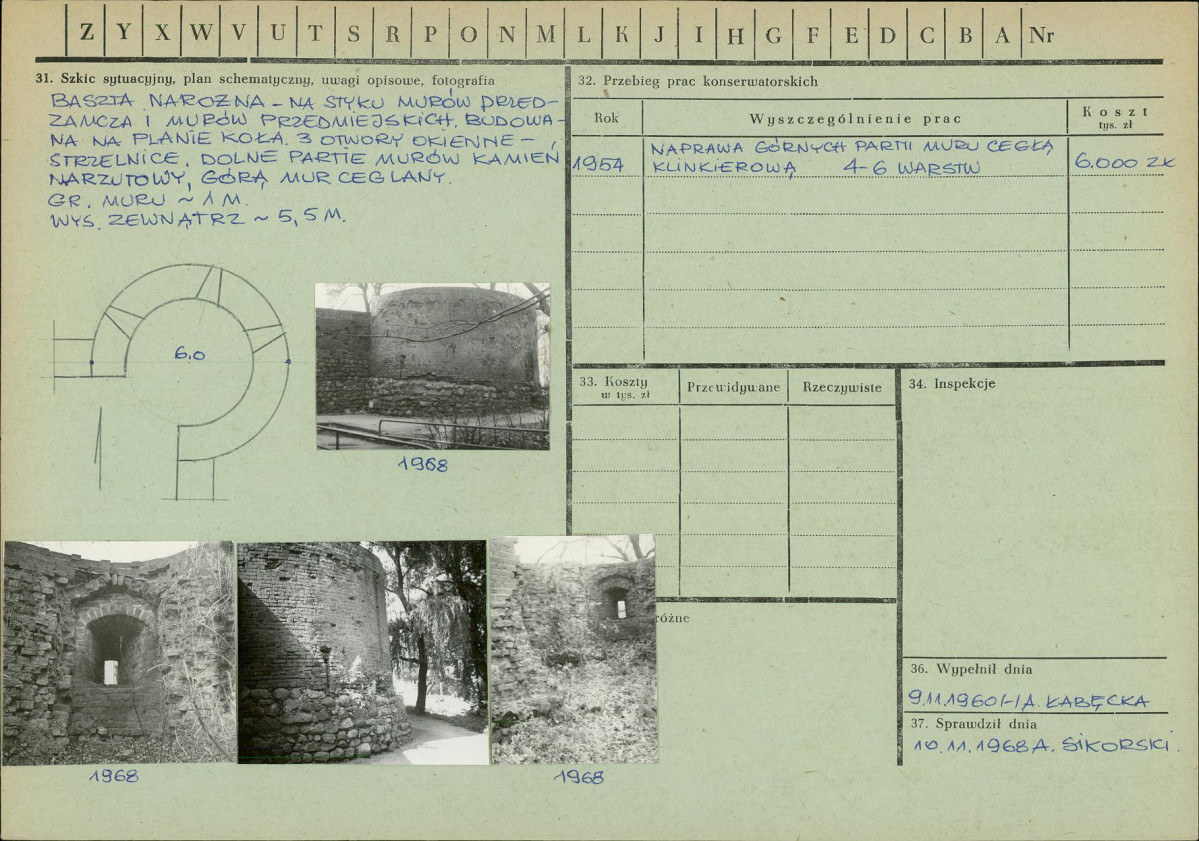 Z Y X W V U T S R P O N M L K J I H G F E D C B A Nr
31. Szkic sytuacyjny, plan schematyczny, uwagi opisowe, fotografia
BASZTA NAROŻNA - NA STYKU MURÓW PRZED-
ZAMCZA I MURÓW PRZEDMIEJSKICH. BUDOWA-
NA NA PLANIE KOŁA. 3 OTWORY OKIENNE -
STRZELNICE. DOLNE PARTIE MURÓW KAMIEŃ
NARZUTOWY, GÓRĄ MUR CEGLANY.
GR. MURU ~ 1 M.
WYS. ZEWNĄTRZ ~ 5,5 M.
6,0
1968
1968
1968
32. Przebieg prac konserwatorskich
Rok Wyszczególnienie prac Koszt tys. zł
1957 NAPRAWA GÓRNYCH PARTII MURU CEGŁĄ
KLINKIEROWĄ 4-6 WARSTW 6.000 ZŁ
33. Koszty w tys. zł Przewidywane Rzeczywiste
34. Inspekcje
różne
36. Wypełnił dnia
9.11.1960 /-/ A. ŁABĘCKA
37. Sprawdził dnia
10.11.1968 A. SIKORSKI.